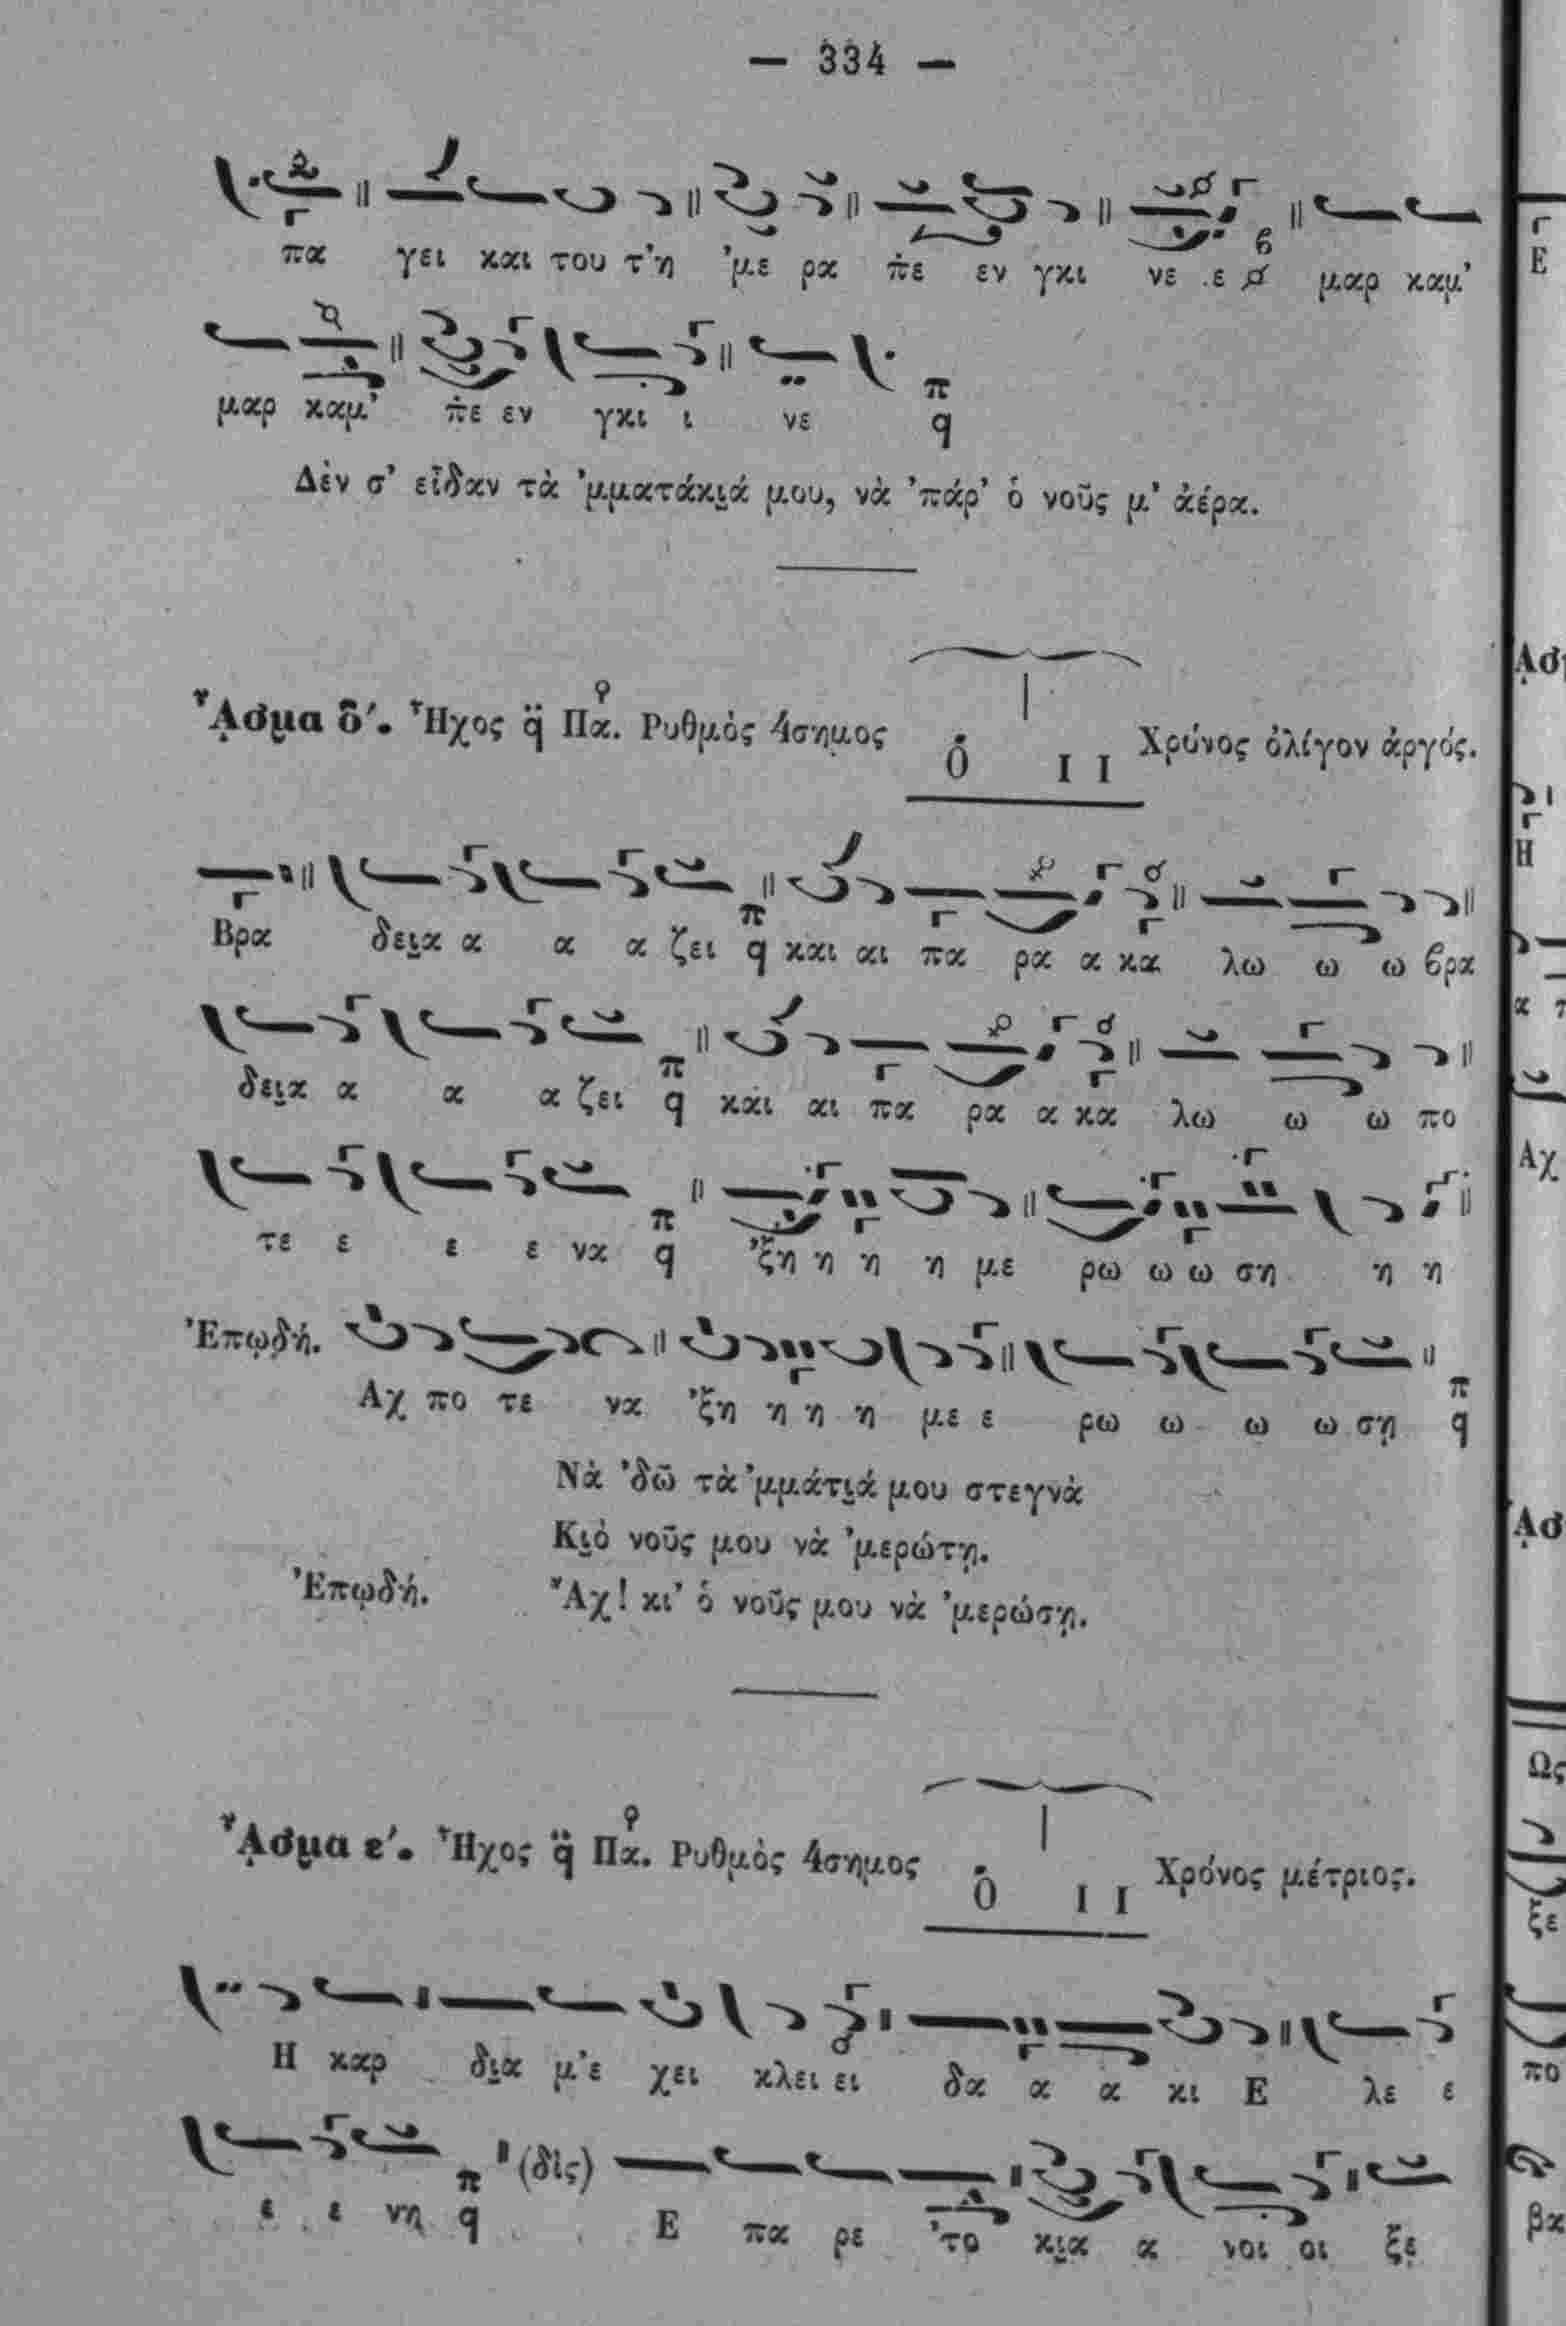 — 334 —
πα γει και του τ'η 'με ρα πε εν γκι νε ε μαρ καμ'
μαρ καμ' πε εν γκι ι νε π q
Δὲν σ' εἶδαν τὰ 'μματάκι̮ά μου, νὰ 'πάρ' ὁ νοῦς μ' ἀέρα.
ᾎσμα δ΄. Ἦχος q̈ Πα. Ρυθμὸς 4σημος Ο Ι Ι Χρόνος ὀλίγον ἀργός.
Βρα δει̮α α α α ζει π q και αι πα ρα α κα λω ω ω βρα
δει̮α α α α ζει π q και αι πα ρα α κα λω ω ω πο
τε ε ε ε να π q 'ξη η η η με ρω ω ω ση η η
Ἐπῳδή. Αχ πο τε να 'ξη η η η με ε ρω ω ω ω σῃ π q
Νὰ 'δῶ τὰ 'μμάτι̮ά μου στεγνὰ
Κι̮ὁ νοῦς μου νὰ 'μερώτῃ.
Ἐπῳδή. Ἄχ! κι' ὁ νοῦς μου νὰ 'μερώσῃ.
ᾎσμα ε΄. Ἦχος q̈ Πα. Ρυθμὸς 4σημος Ο Ι Ι Χρόνος μέτριος.
Η καρ δι̮α μ'ε χει κλει ει δα α α κι Ε λε ε
ε ε νη π q (δὶς) Ε πα ρε 'το κι̮α α νοι οι ξε